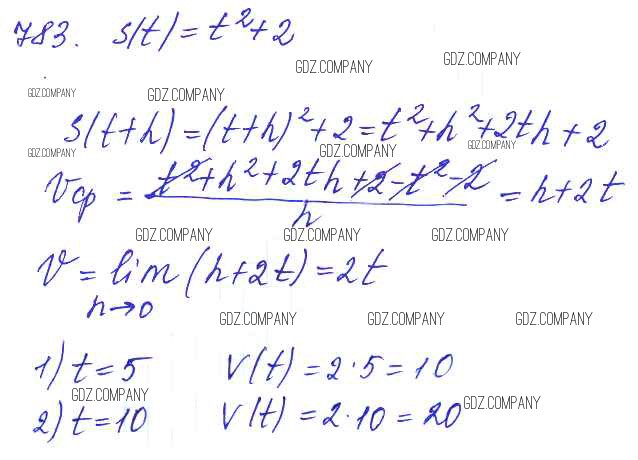 783. s(t) = t² + 2
GDZ.COMPANY GDZ.COMPANY
GDZ.COMPANY GDZ.COMPANY
s(t+h) = (t+h)² + 2 = t² + h² + 2th + 2
GDZ.COMPANY GDZ.COMPANY GDZ.COMPANY
Vср = (t² + h² + 2th + 2 - t² - 2) / h = h + 2t
GDZ.COMPANY GDZ.COMPANY GDZ.COMPANY
V = lim (h + 2t) = 2t
h→0
GDZ.COMPANY GDZ.COMPANY GDZ.COMPANY
1) t = 5 V(t) = 2·5 = 10
GDZ.COMPANY GDZ.COMPANY
2) t = 10 V(t) = 2·10 = 20